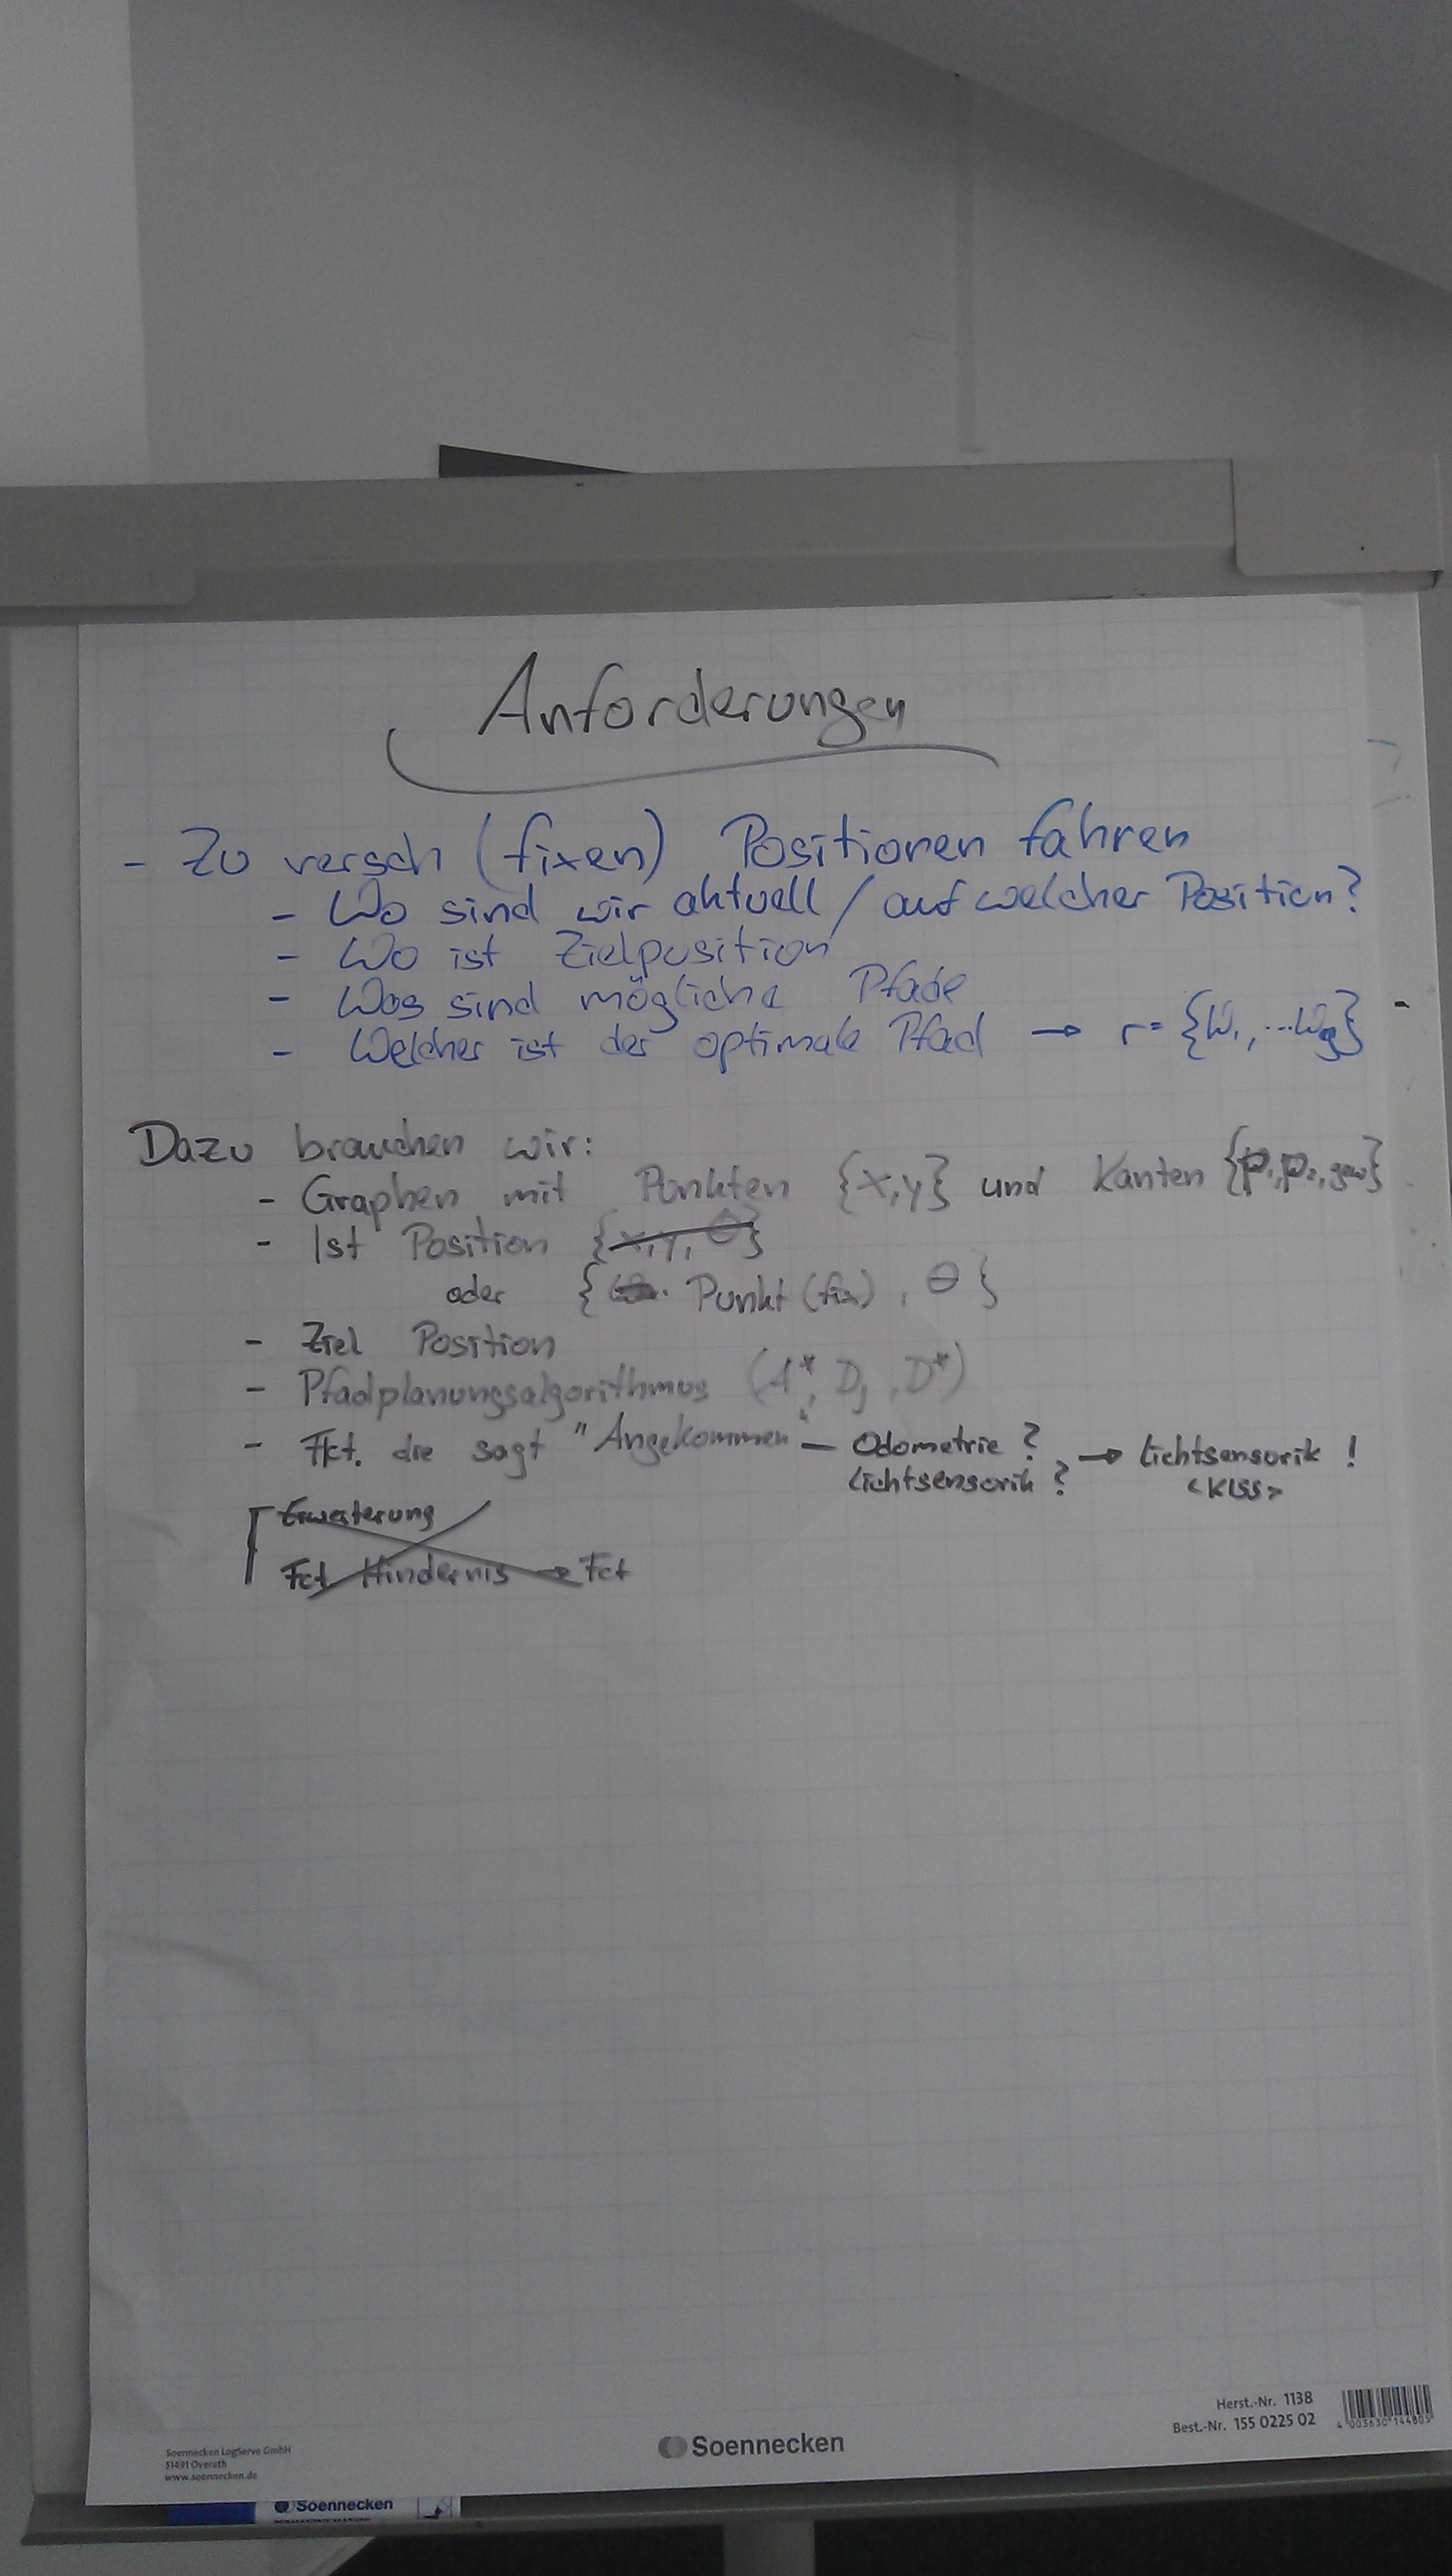 Anforderungen
- Zu versch (fixen) Positionen fahren
- Wo sind wir aktuell / auf welcher Position?
- Wo ist Zielposition
- Was sind mögliche Pfade
- Welcher ist der optimale Pfad → r = {W₁, ...W }
Dazu brauchen wir:
- Graphen mit Punkten {x,y} und Kanten {p₁,p₂, gew}
- Ist Position {x, y, θ}
oder { Punkt (fix), θ }
- Ziel Position
- Pfadplanungsalgorithmus (A*, Dj, D*)
- Fkt. die sagt "Angekommen" — Odometrie ? → Lichtsensorik !
Lichtsensorik ? <KISS>
Erweiterung
Fct Hindernis → Fct
Herst.-Nr. 1138
Best.-Nr. 155 0225 02
4 003630 144805
Soennecken
Soennecken LogServe GmbH
51491 Overath
www.soennecken.de
Soennecken